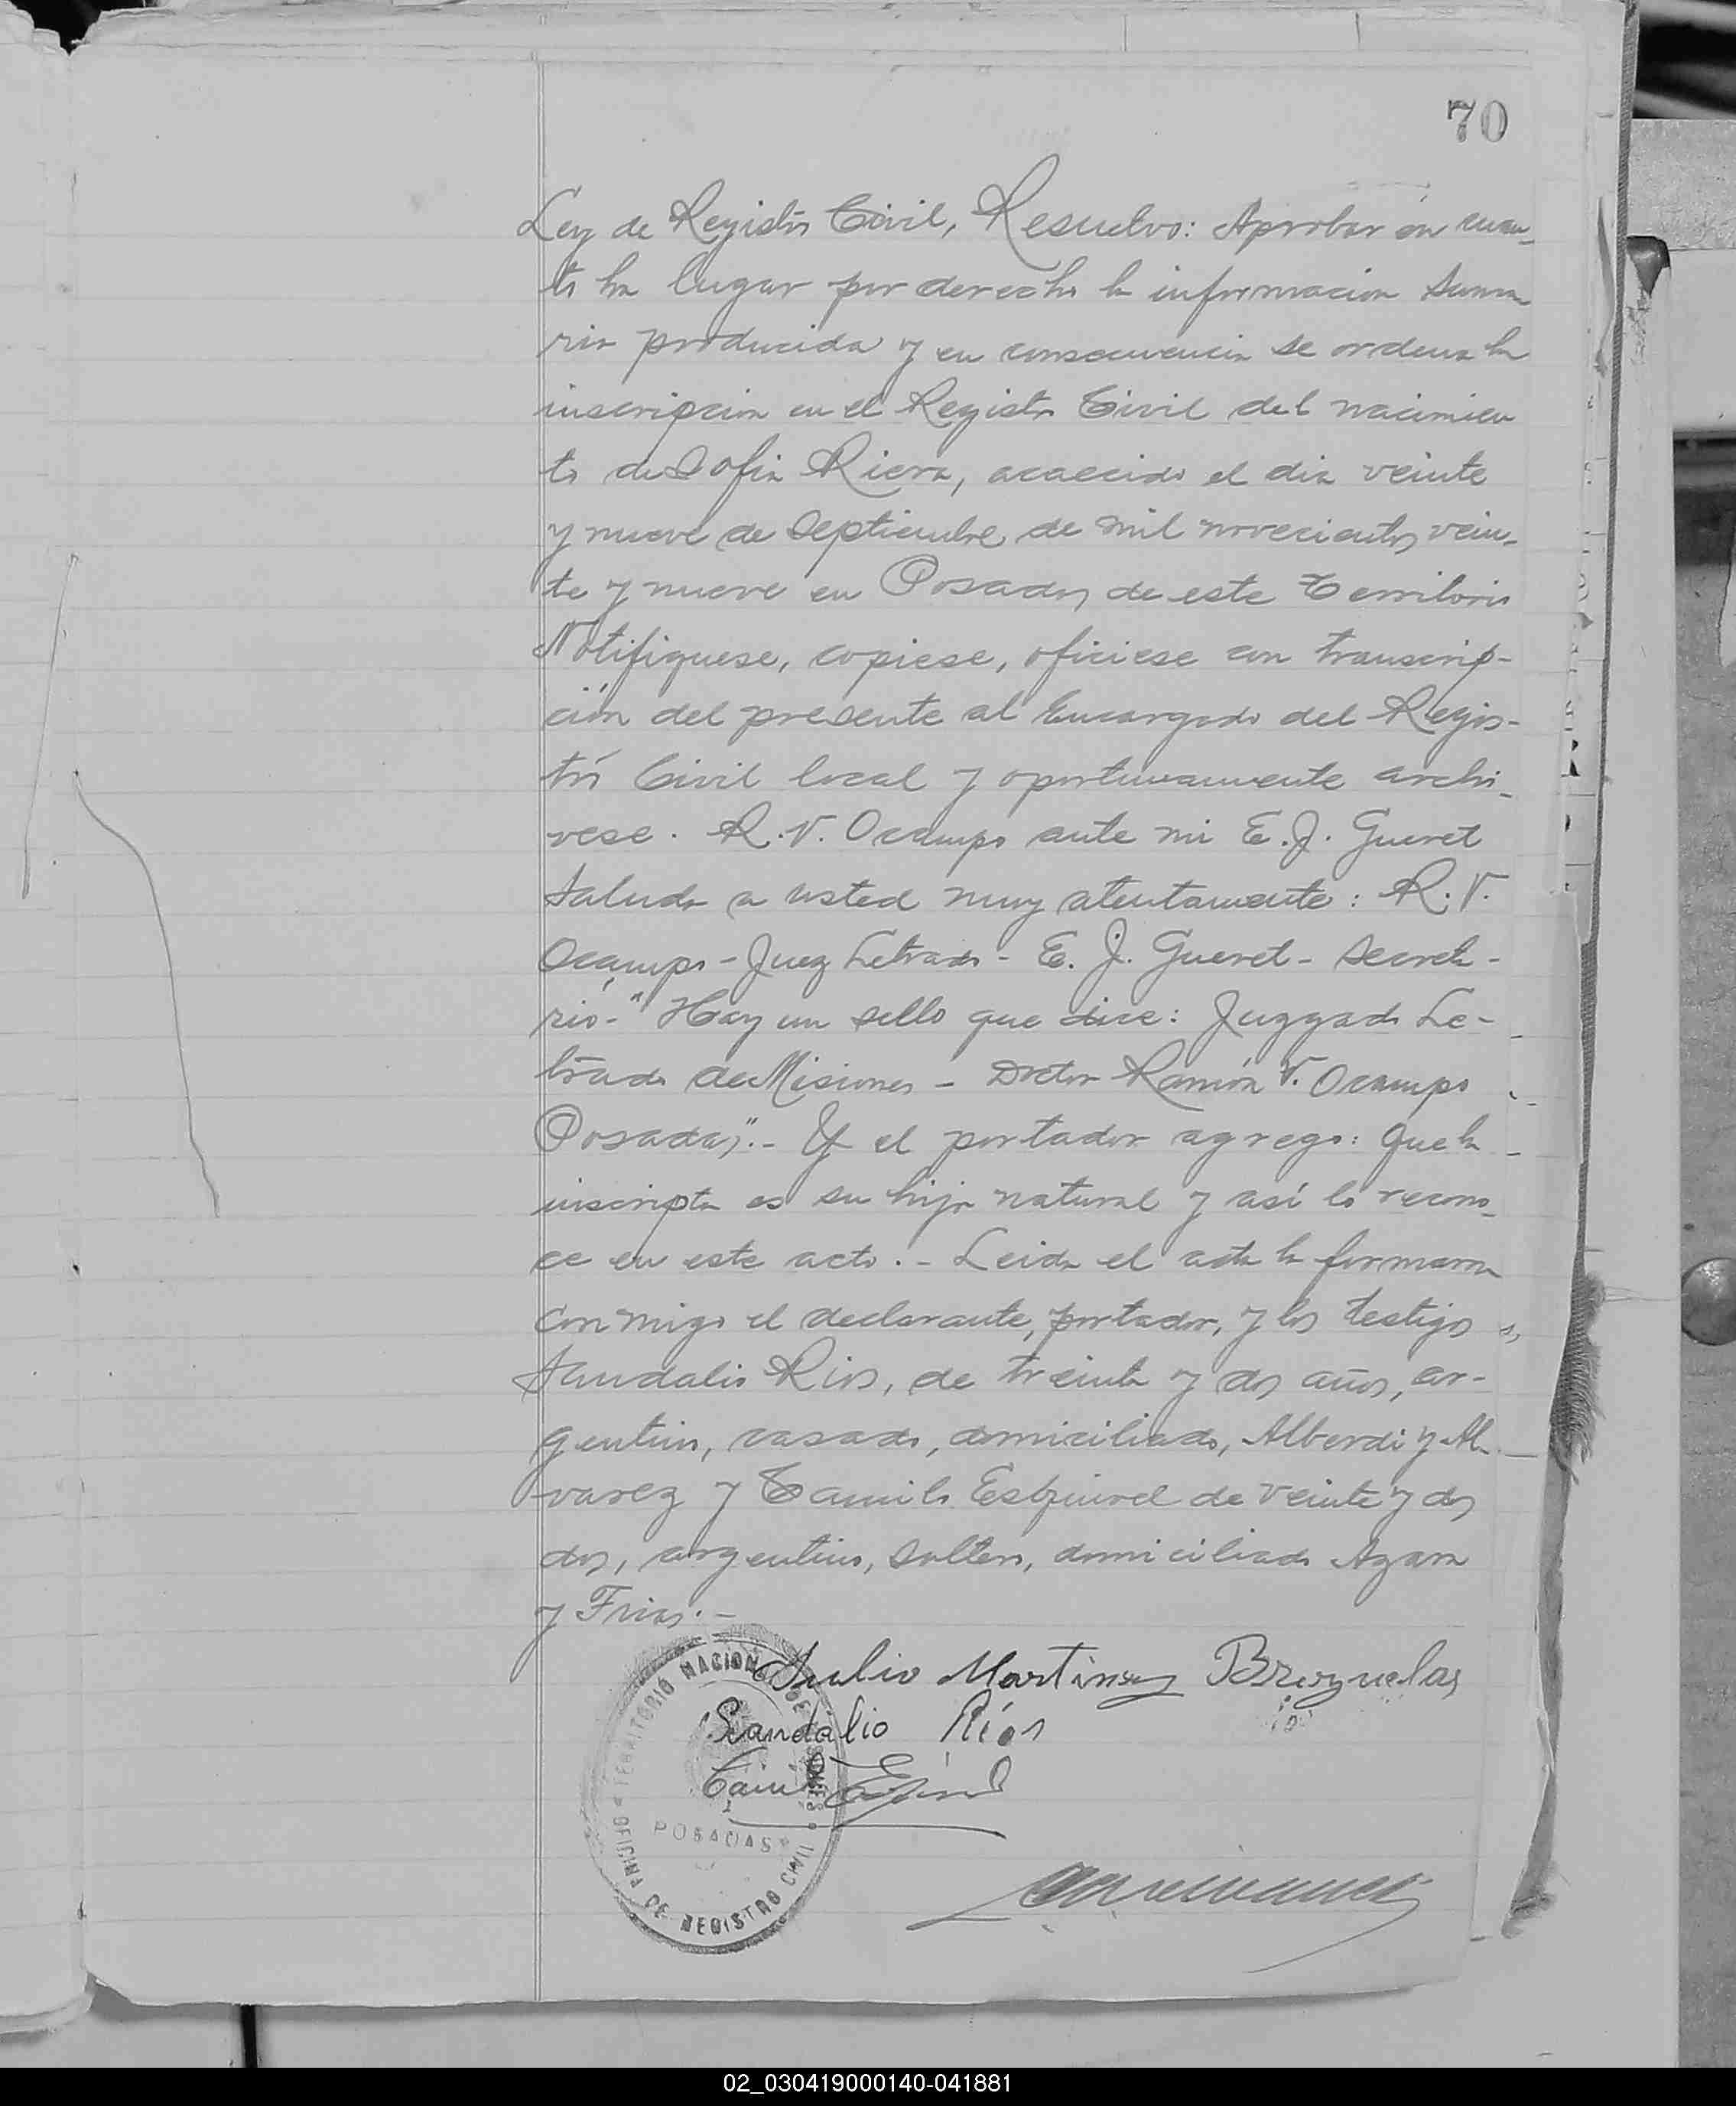 70
Ley de Registro Civil, Resuelvo: Aprobar en cuan-
to ha lugar por derecho la informacion suma
ria producida y en consecuencia se ordena la
inscripcion en el Registro Civil del nacimien
to de Sofia Riera, acaecido el dia veinte
y nueve de Septiembre de mil novecientos vein-
te y nueve en Posadas de este Territorio
Notifiquese, copiese, oficiese con transcrip-
ción del presente al Encargado del Regis-
tro Civil local y oportunamente archi-
vese. R. V. Ocampo ante mi E. J. Gueret
Saludo a usted muy atentamente: R. V.
Ocampo - Juez Letrado - E. J. Gueret - Secreta-
rio-" Hay un sello que dice: Juzgado Le-
trado de Misiones - Doctor Ramón V. Ocampo
Posadas".- Y el portador agrego: Que la
inscripta es su hija natural y así la recono-
ce en este acto.- Leida el acta la firmaron
conmigo el declarante, portador, y los testigos
Sandalio Rios, de treinta y dos años, ar-
gentino, casado, domiciliado, Alberdi y Al-
varez y Camilo Esquivel de veinte y dos
dos, argentino, soltero, domiciliado Azara
y Frias.-
Julio Martinez Brizuelas
Sandalio Ríos
TERRITORIO NACIONAL DE MISIONES
POSADAS
OFICINA DE REGISTRO CIVIL
02_030419000140-041881